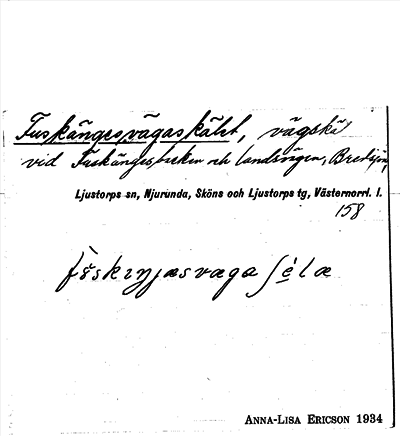 Fuskängesvägaskälet, vägskä
vid Fuskängesbecken och landsvägen, Bredsjön,
Ljustorps sn, Njurunda, Sköns och Ljustorps tg, Västernorrl. l.
158
ANNA-LISA ERICSON 1934